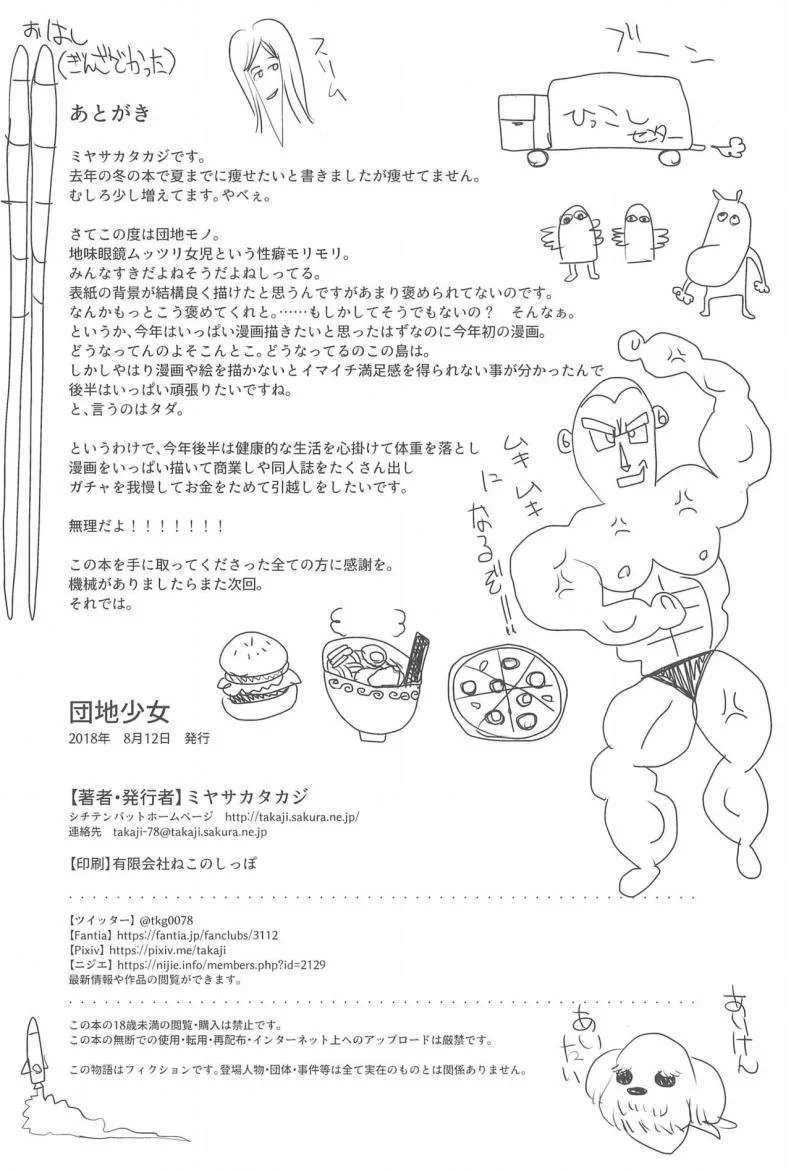 おはし
(ぎんざでかった)
スリム
ブーン
ひっこし
センター
あとがき
ミヤサカタカジです。
去年の冬の本で夏までに痩せたいと書きましたが痩せてません。
むしろ少し増えてます。やべぇ。
さてこの度は団地モノ。
地味眼鏡ムッツリ女児という性癖モリモリ。
みんなすきだよねそうだよねしってる。
表紙の背景が結構良く描けたと思うんですがあまり褒められてないのです。
なんかもっとこう褒めてくれと。……もしかしてそうでもないの？　そんなぁ。
というか、今年はいっぱい漫画描きたいと思ったはずなのに今年初の漫画。
どうなってんのよそこんとこ。どうなってるのこの島は。
しかしやはり漫画や絵を描かないとイマイチ満足感を得られない事が分かったんで
後半はいっぱい頑張りたいですね。
と、言うのはタダ。
というわけで、今年後半は健康的な生活を心掛けて体重を落とし
漫画をいっぱい描いて商業しや同人誌をたくさん出し
ガチャを我慢してお金をためて引越しをしたいです。
無理だよ！！！！！！！
この本を手に取ってくださった全ての方に感謝を。
機械がありましたらまた次回。
それでは。
ムキムキ
になるぞー!!
団地少女
2018年　8月12日　発行
【著者・発行者】ミヤサカタカジ
シチテンバットホームページ　http://takaji.sakura.ne.jp/
連絡先　takaji-78@takaji.sakura.ne.jp
【印刷】有限会社ねこのしっぽ
【ツイッター】@tkg0078
【Fantia】https://fantia.jp/fanclubs/3112
【Pixiv】https://pixiv.me/takaji
【ニジエ】https://nijie.info/members.php?id=2129
最新情報や作品の閲覧ができます。
この本の18歳未満の閲覧・購入は禁止です。
この本の無断での使用・転用・再配布・インターネット上へのアップロードは厳禁です。
この物語はフィクションです。登場人物・団体・事件等は全て実在のものとは関係ありません。
あいたい